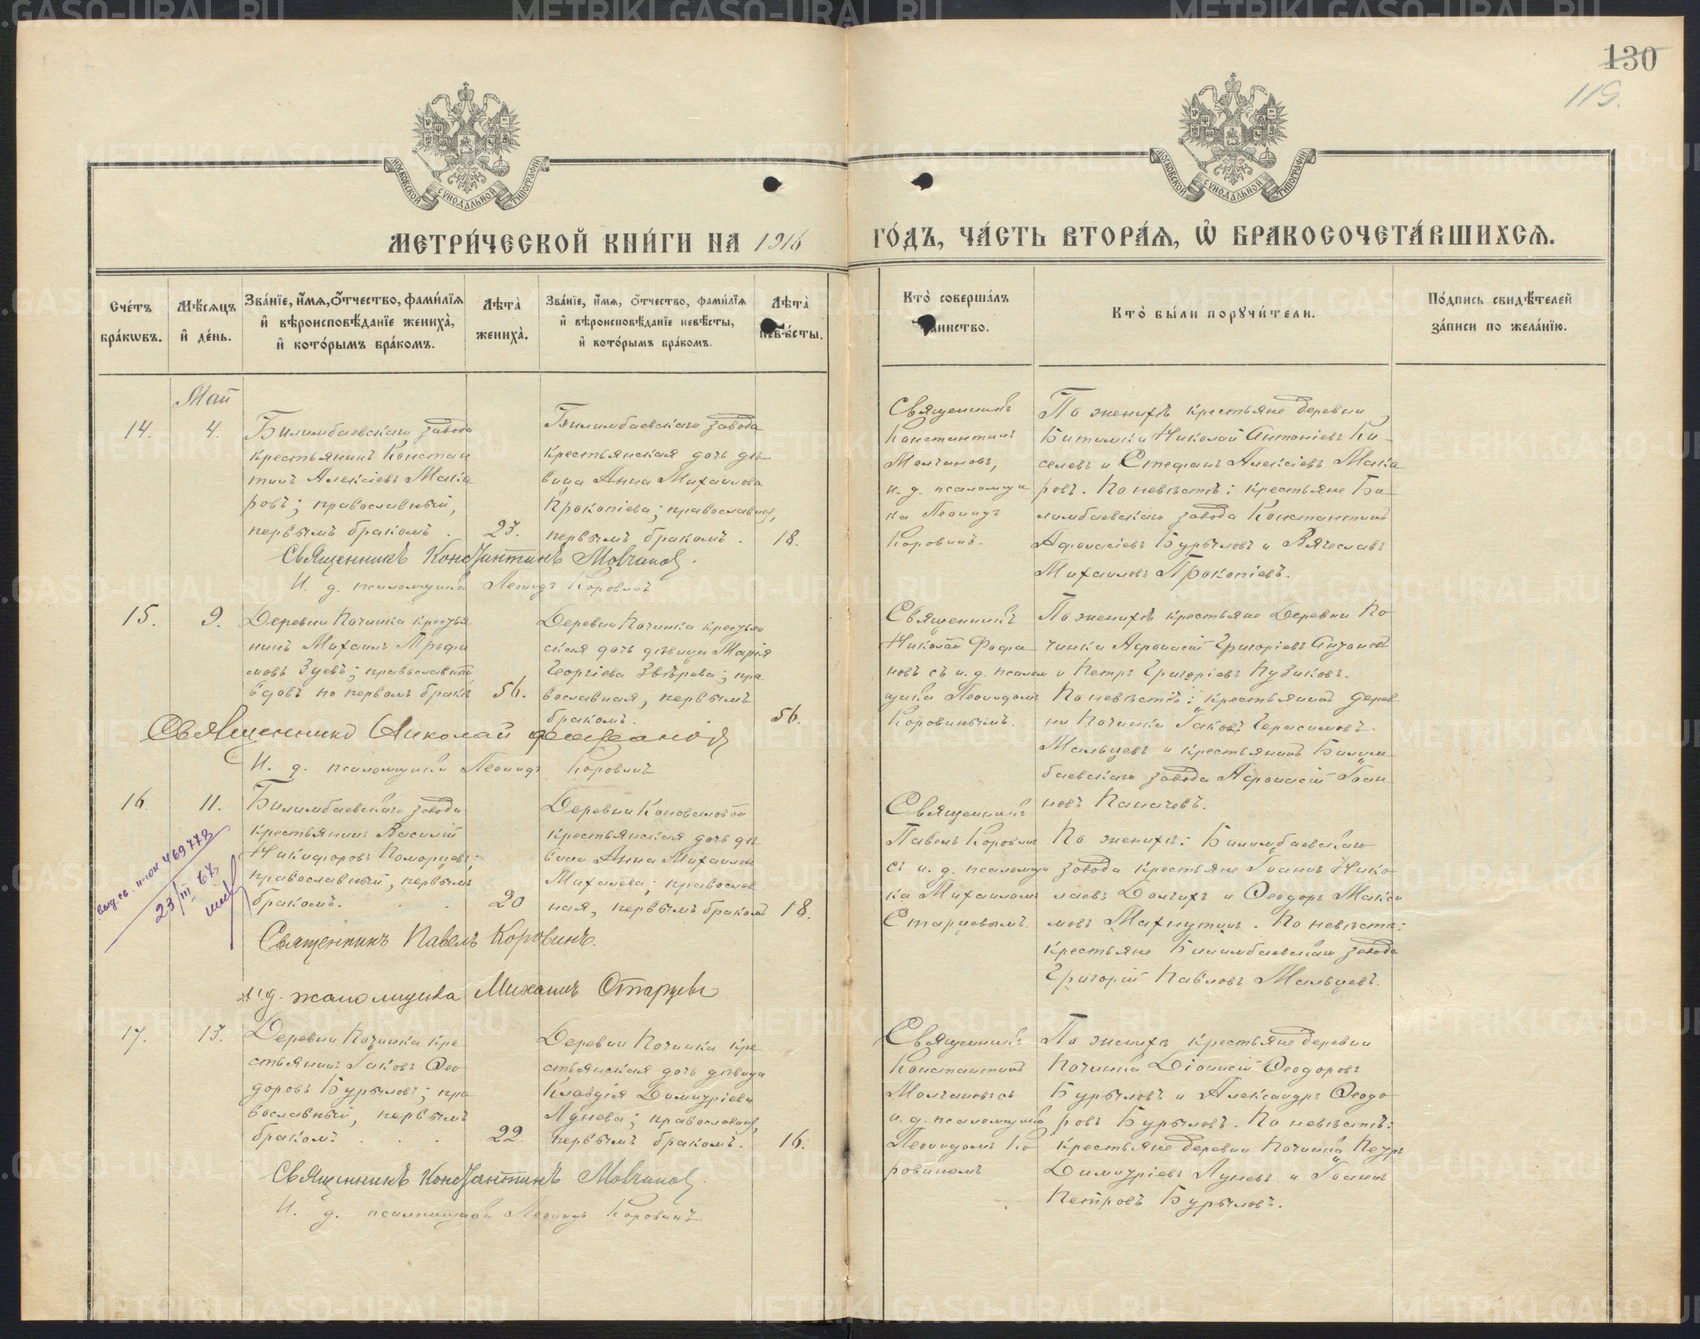 130
119.
МОСКОВСКОЙ СѴНОДАЛЬНОЙ ТИПОГРАФІИ
МОСКОВСКОЙ СѴНОДАЛЬНОЙ ТИПОГРАФІИ
МЕТРИ́ЧЕСКОЙ КНИ́ГИ НА 1916 ГО́ДЪ, ЧА́СТЬ ВТОРА́Ѧ, Ѡ҆ БРАКОСОЧЕТА́ВШИХСѦ.
Сче́тъ бра́кѡвъ.
Мѣ́сѧцъ и҆ де́нь.
Зва́нїе, и҆́мѧ, о҆́тчество, фами́лїѧ и҆ вѣроисповѣ́данїе жениха̀, и҆ кото́рымъ бра́комъ.
Лѣта̀ жениха̀.
Зва́нїе, и҆́мѧ, о҆́тчество, фами́лїѧ и҆ вѣроисповѣ́данїе невѣ́сты, и҆ кото́рымъ бра́комъ.
Лѣта̀ невѣ́сты.
Кто̀ соверша́лъ таинство.
Кто̀ бы́ли порꙋчи́тели.
По́дпись свидѣ́телей за́писи по жела́нїю.
Май
14.
4.
Билимбаевскаго завода
крестьянинъ Констан
тинъ Алексіевъ Мака
ровъ; православный,
первымъ бракомъ.
27.
Билимбаевскаго завода
крестьянская дочь дѣ
вица Анна Михаилова
Прокопіева; православная,
первымъ бракомъ.
18.
Священникъ
Константинъ
Молчановъ,
и. д. псаломщи
ка Леонидъ
Коровинъ.
По женихѣ крестьяне деревни
Битимки Николай Антоніевъ Ки-
селевъ и Стефанъ Алексіевъ Мака
ровъ. По невѣстѣ: крестьяне Би-
лимбаевскаго завода Константинъ
Афанасіевъ Бурыловъ и Вячеславъ
Михаиловъ Прокопіевъ.
Священникъ Константинъ Молчановъ.
И. д. псаломщика Леонидъ Коровинъ
15.
9.
Деревни Починка крестья
нинъ Михаилъ Трофи
мовъ Зуевъ; православный
вдовъ по первомъ бракѣ
56.
Деревни Починка крестьян
ская дочь дѣвица Марія
Георгіева Звѣрева; пра
вославная, первымъ
бракомъ.
56.
Священникъ
Николай
новъ съ и. д. псалом
щика Леонидомъ
Коровинымъ.
По женихѣ крестьяне Деревни По
чинка Афанасій Григоріевъ
и Петръ Григоріевъ
По невѣстѣ: крестьянинъ дерев
ни Починка Іаковъ Герасимовъ
Мальцевъ и крестьянинъ Билим
баевскаго завода Афанасій Іоан
новъ Паначевъ.
Священникъ Николай
И. д. псаломщика Леонидъ Коровинъ
16
11.
Билимбаевскаго завода
крестьянинъ Василій
Никифоровъ Поморцевъ;
православный, первымъ
бракомъ.
20
Деревни Коноваловой
крестьянская дочь дѣ
вица Анна Михаилова
Михалева; православ
ная, первымъ бракомъ
18.
Священникъ
Павелъ Коровинъ
съ и. д. псаломщи
ка Михаиломъ
Старцевымъ.
По женихѣ: Билимбаевскаго
завода крестьяне Іоаннъ Нико
лаевъ Долгихъ и Ѳеодоръ Макси
мовъ Махнутинъ. По невѣстѣ:
крестьяне Билимбаевскаго завода
Григорій Павловъ Мальцевъ.
469773
23/III 67
Священникъ Павелъ Коровинъ.
и.д. псаломщика Михаилъ Старцевъ
17.
13.
Деревни Починка кре
стьянинъ Іаковъ Ѳео
доровъ Бурыловъ; пра
вославный, первымъ
бракомъ
22.
Деревни Починка кре
стьянская дочь дѣвица
Клавдія Димитріева
Лунева; православная,
первымъ бракомъ.
16.
Священникъ
Константинъ
Молчановъ съ
и. д. псаломщика
Леонидомъ Ко
ровинымъ
По женихѣ крестьяне деревни
Починка Діонисій Ѳеодоровъ
Бурыловъ и Александръ Ѳеодо
ровъ Бурыловъ. По невѣстѣ:
крестьяне деревни Починка Петръ
Димитріевъ Луневъ и Іоаннъ
Петровъ Бурыловъ.
Священникъ Константинъ Молчановъ.
И. д. псаломщика Леонидъ Коровинъ
METRIKI.GASO-URAL.RU